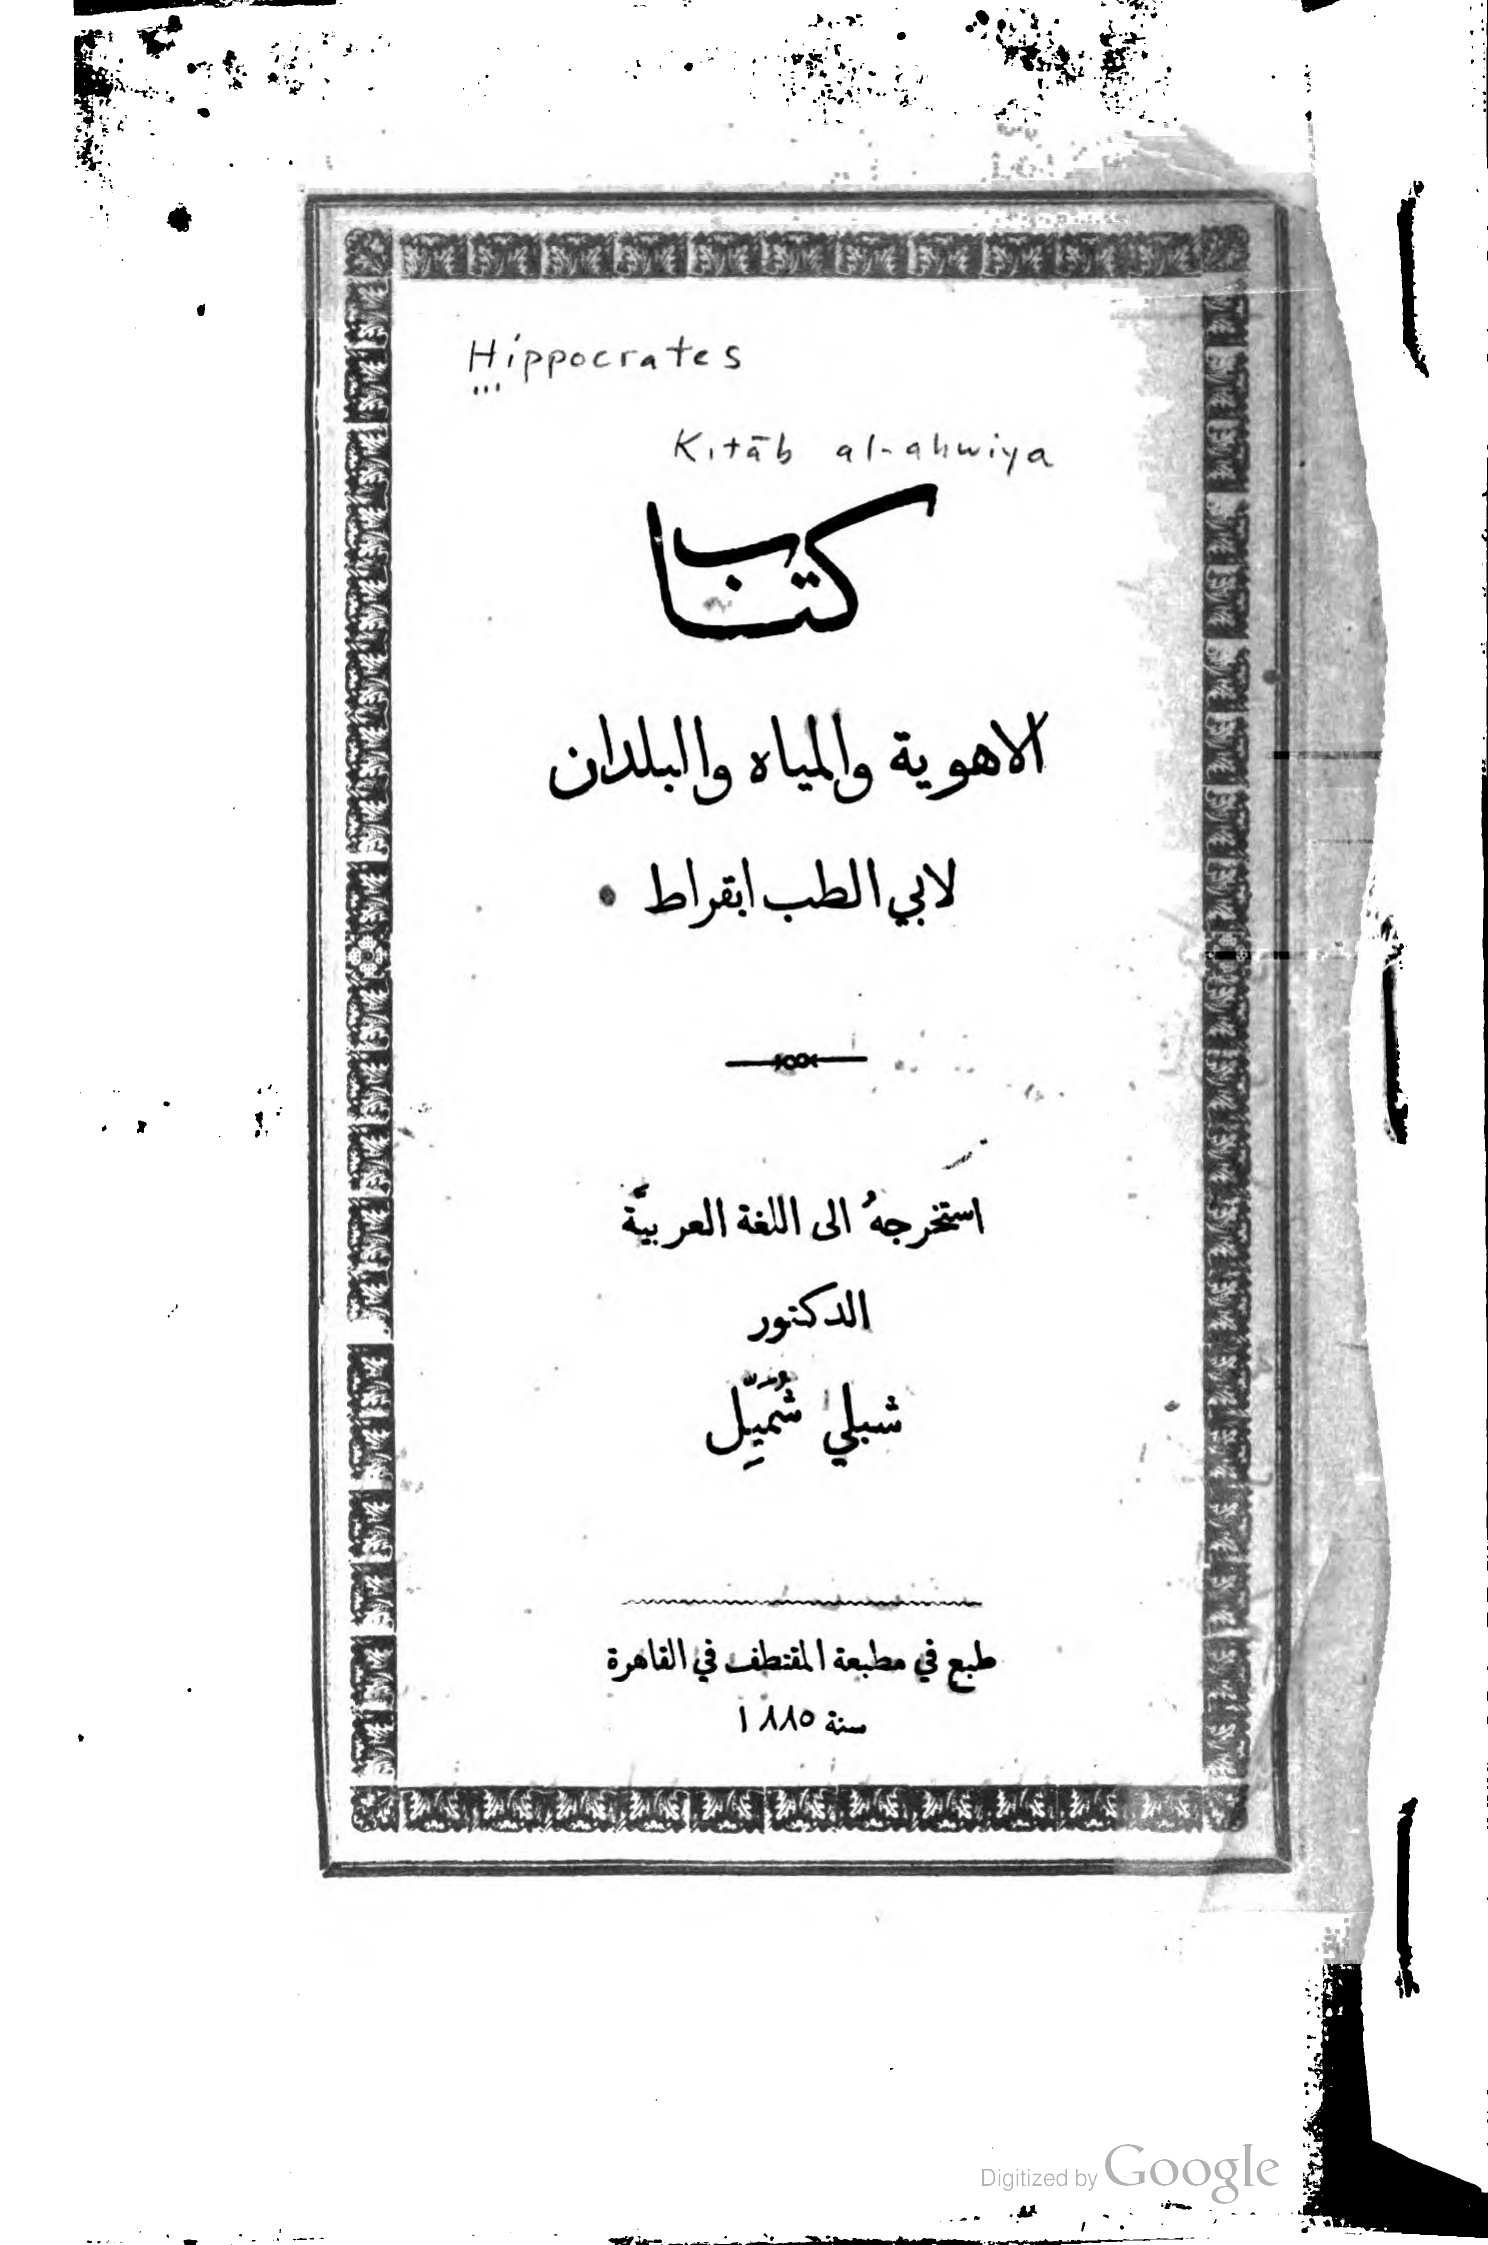 Hippocrates
Kitāb al-ahwiya
كتاب
الاهوية والمياه والبلدان
لابي الطب ابقراط
استخرجهُ الى اللغة العربيَّة
الدكتور
شبلي شُمَيِّل
طبع في مطبعة المقتطف في القاهرة
سنة ١٨٨٥
Digitized by Google